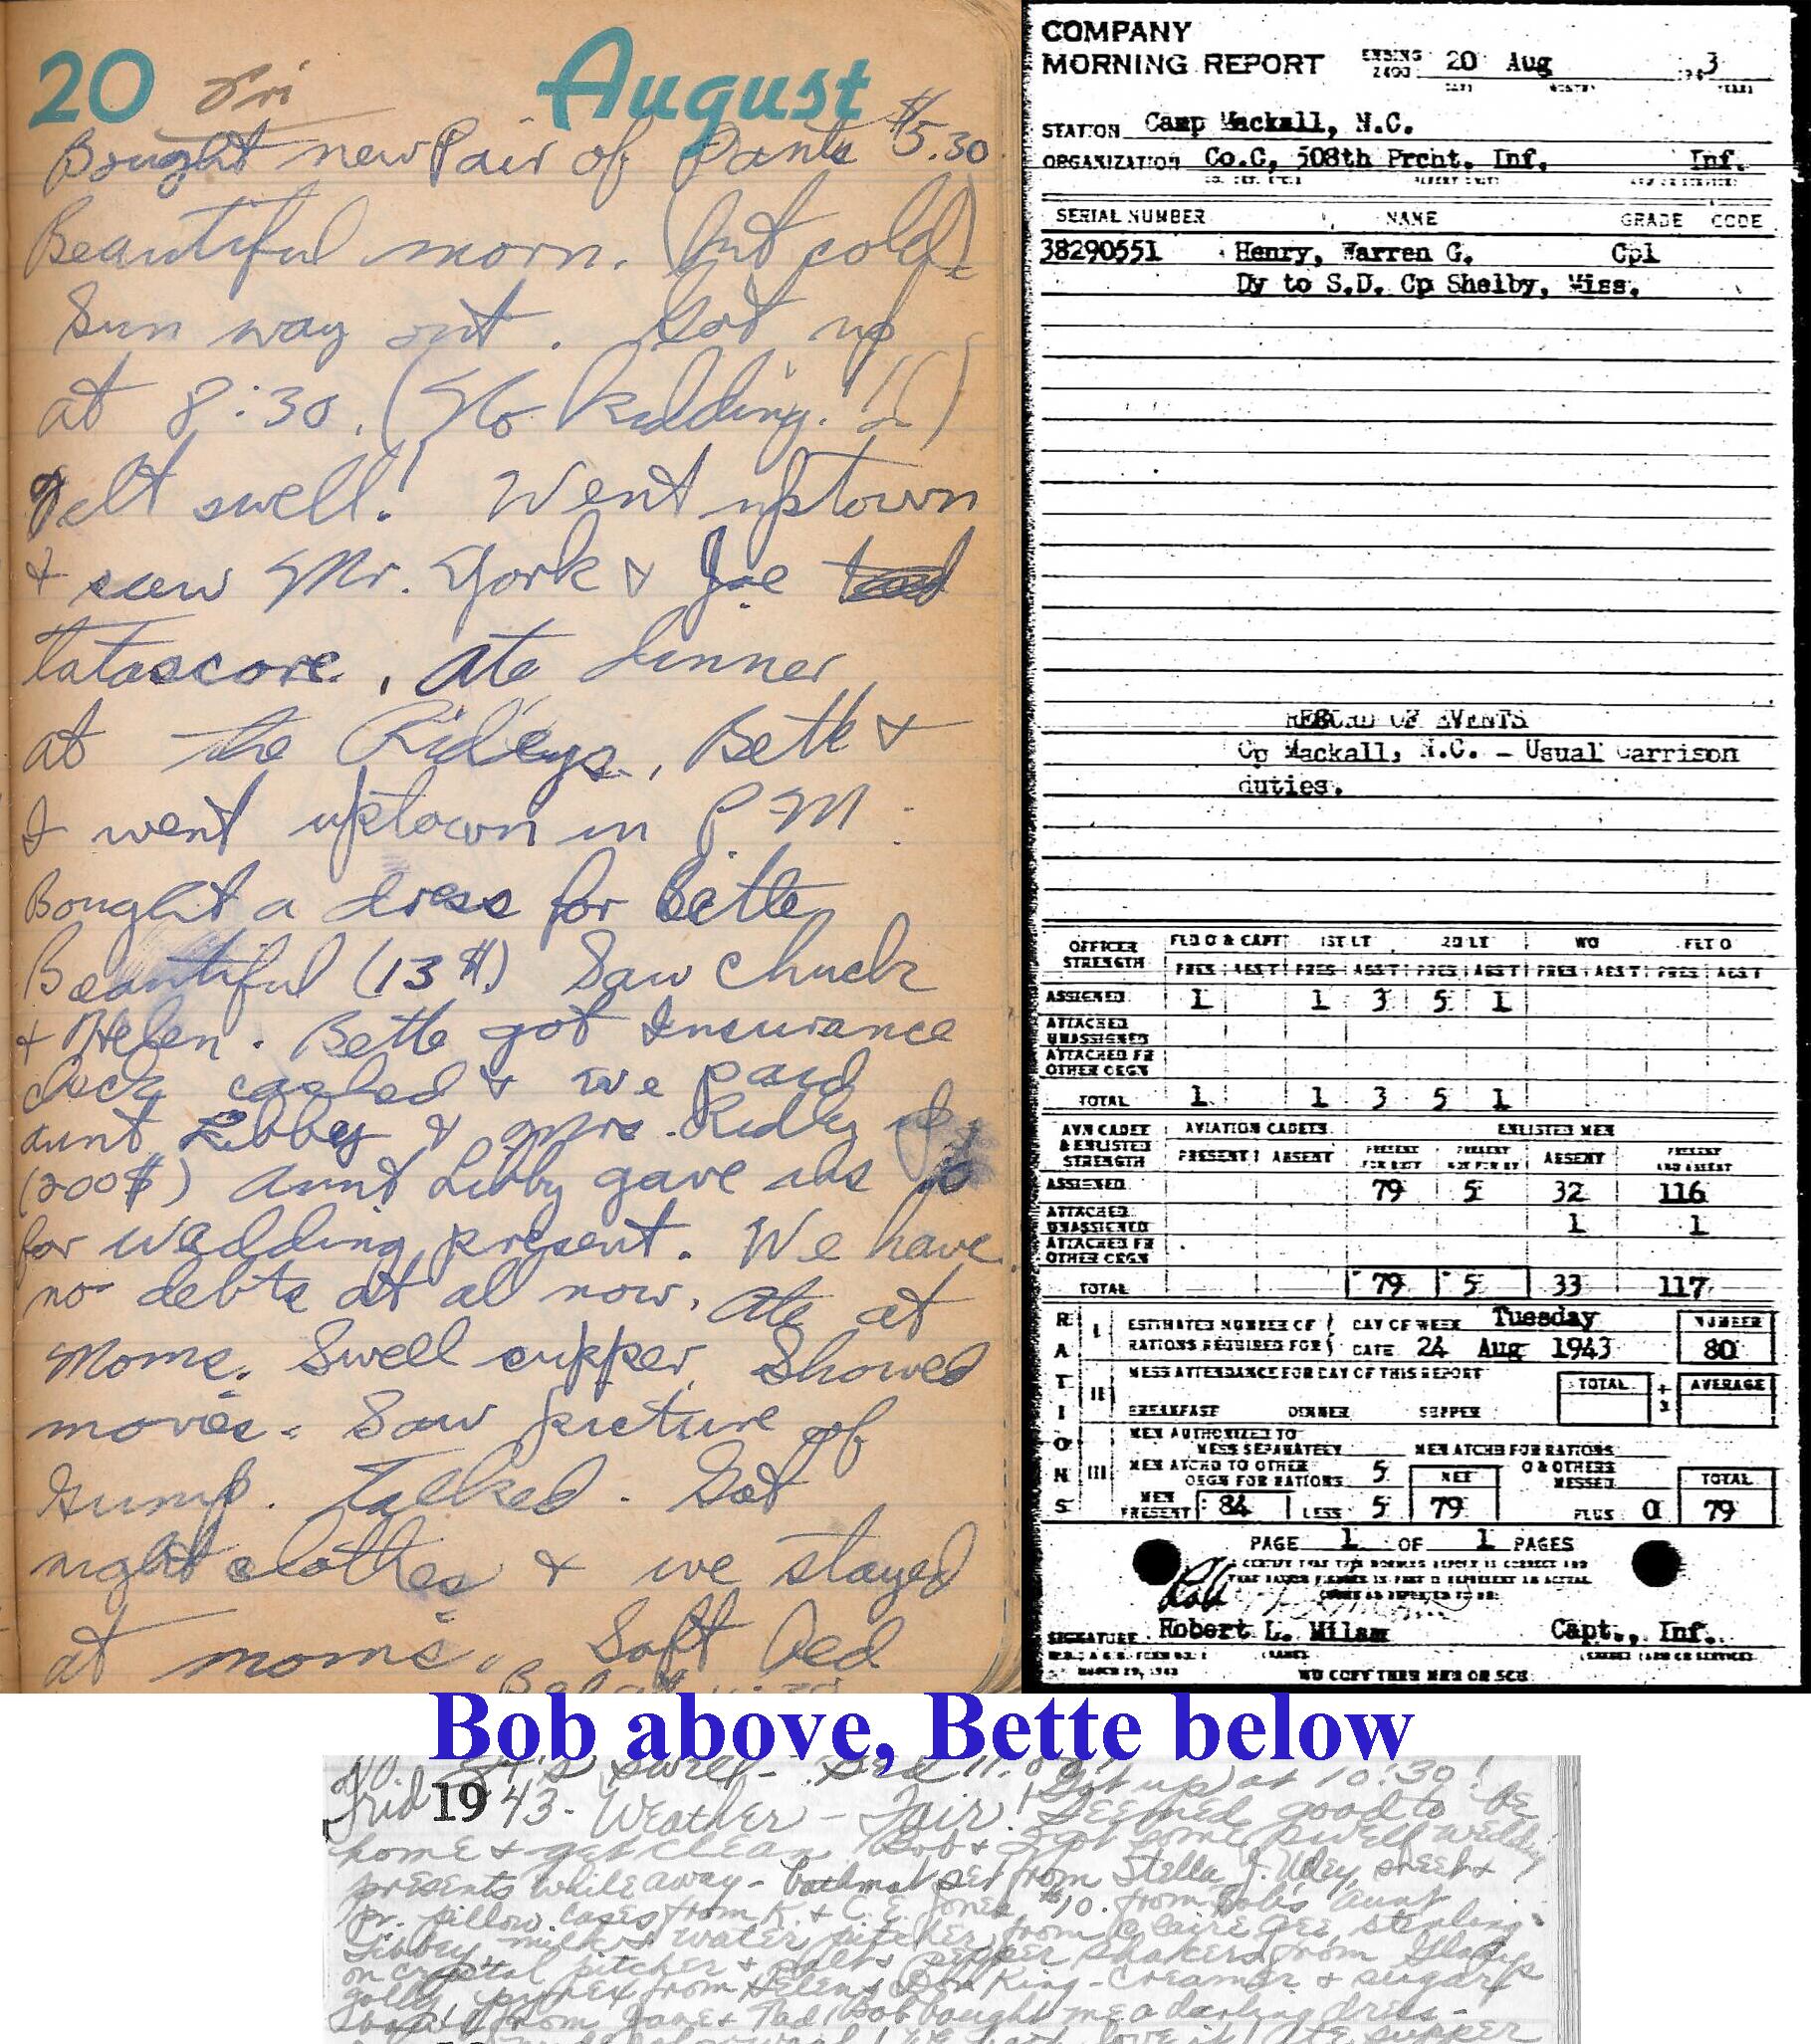 20 Fri August
Bought new Pair of Pants $5.30
Beautiful morn. (but cold)
Sun way out. Got up
at 8:30. (No kidding.!!)
Felt swell! Went uptown
& saw Mr. York & Joe
tatascore. Ate dinner
at the Ridleys. Bette &
I went uptown in P.M.
Bought a dress for Bette
Beautiful (13$) Saw Chuck
& Helen. Bette got Insurance
check cashed & we paid
aunt Libby & Mrs. Ridley
(200$) Aunt Libby gave us
for wedding present. We have
no debts at al now. Ate at
Moms. Swell supper. Showed
movies. Saw picture of
Gump. Talked. Got
night clothes & we stayed
at moms. Soft Bed
COMPANY
MORNING REPORT ENDING 2400 20 Aug 194 3
DAY MONTH YEAR
STATION Camp Mackall, N.C.
ORGANIZATION Co.C, 508th Prcht. Inf. Inf.
SERIAL NUMBER NAME GRADE CODE
38290551 Henry, Warren G. Cpl
Dy to S.D. Cp Shelby, Miss.
RECORD OF EVENTS
Cp Mackall, N.C. - Usual Garrison
duties.
OFFICER STRENGTH FLD O & CAPT 1ST LT 2D LT WO FLT O
PRES ABST PRES ABST PRES ABST PRES ABST PRES ABST
ASSIGNED 1 1 3 5 1
ATTACHED UNASSIGNED
ATTACHED FR OTHER ORGN
TOTAL 1 1 3 5 1
AVN CADET & ENLISTED STRENGTH AVIATION CADETS ENLISTED MEN
PRESENT ABSENT PRESENT FOR DUTY PRESENT NOT FOR DY ABSENT PRESENT AND ABSENT
ASSIGNED 79 5 32 116
ATTACHED UNASSIGNED 1 1
ATTACHED FR OTHER ORGN
TOTAL 79 5 33 117
RATIONS
I ESTIMATED NUMBER OF RATIONS REQUIRED FOR DAY OF WEEK Tuesday NUMBER
DATE 24 Aug 1943 80
II MESS ATTENDANCE FOR DAY OF THIS REPORT TOTAL ÷ 3 AVERAGE
BREAKFAST DINNER SUPPER
III MEN AUTHORIZED TO MESS SEPARATELY MEN ATCHD FOR RATIONS
MEN ATCHD TO OTHER ORGN FOR RATIONS 5 NET & OTHERS MESSED TOTAL
MEN PRESENT 84 LESS 5 79 PLUS 0 79
PAGE 1 OF 1 PAGES
I CERTIFY THAT THIS MORNING REPORT IS CORRECT AND
SIGNATURE Robert L. Milam Capt., Inf.
NO COPY THIS
Bob above, Bette below
swell - Bed 11:00! Got up at 10:30!
Frid 1943 - Weather - Fair! Seemed good to be
home & get clean. Bob & I got some swell wedding
presents while away - bathmat set from Stella J. Utley, sheet &
pr. pillow cases from K. & C. E. Jones, $10. from Bob's Aunt
Libbey, milk & water pitcher from Claire Gee, sterling
on crystal pitcher & salt & pepper shakers from Gladys
Golly, pyrex from Helen & Bob King - creamer & sugar
from Jane & Tad! Bob bought me a darling dress -
love it! Ate supper